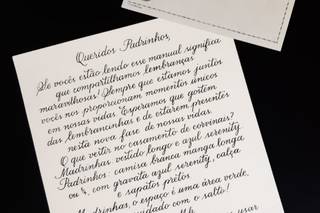 Queridos Padrinhos,
Se vocês estão lendo esse manual significa
que compartilhamos lembranças
maravilhosas! Sempre que estamos juntos
vocês nos proporcionam momentos únicos
em nossas vidas. Esperamos que gostem
das lembrancinhas e de estarem presentes
nesta nova fase de nossas vidas.
O que vestir no casamento de corvinais?
Madrinhas: vestido longo e azul serenity.
Padrinhos: camisa branca manga longa
ou ¾, com gravata azul serenity, calça
e sapatos pretos
Madrinhas, o espaço é uma área verde,
cuidado com o salto!